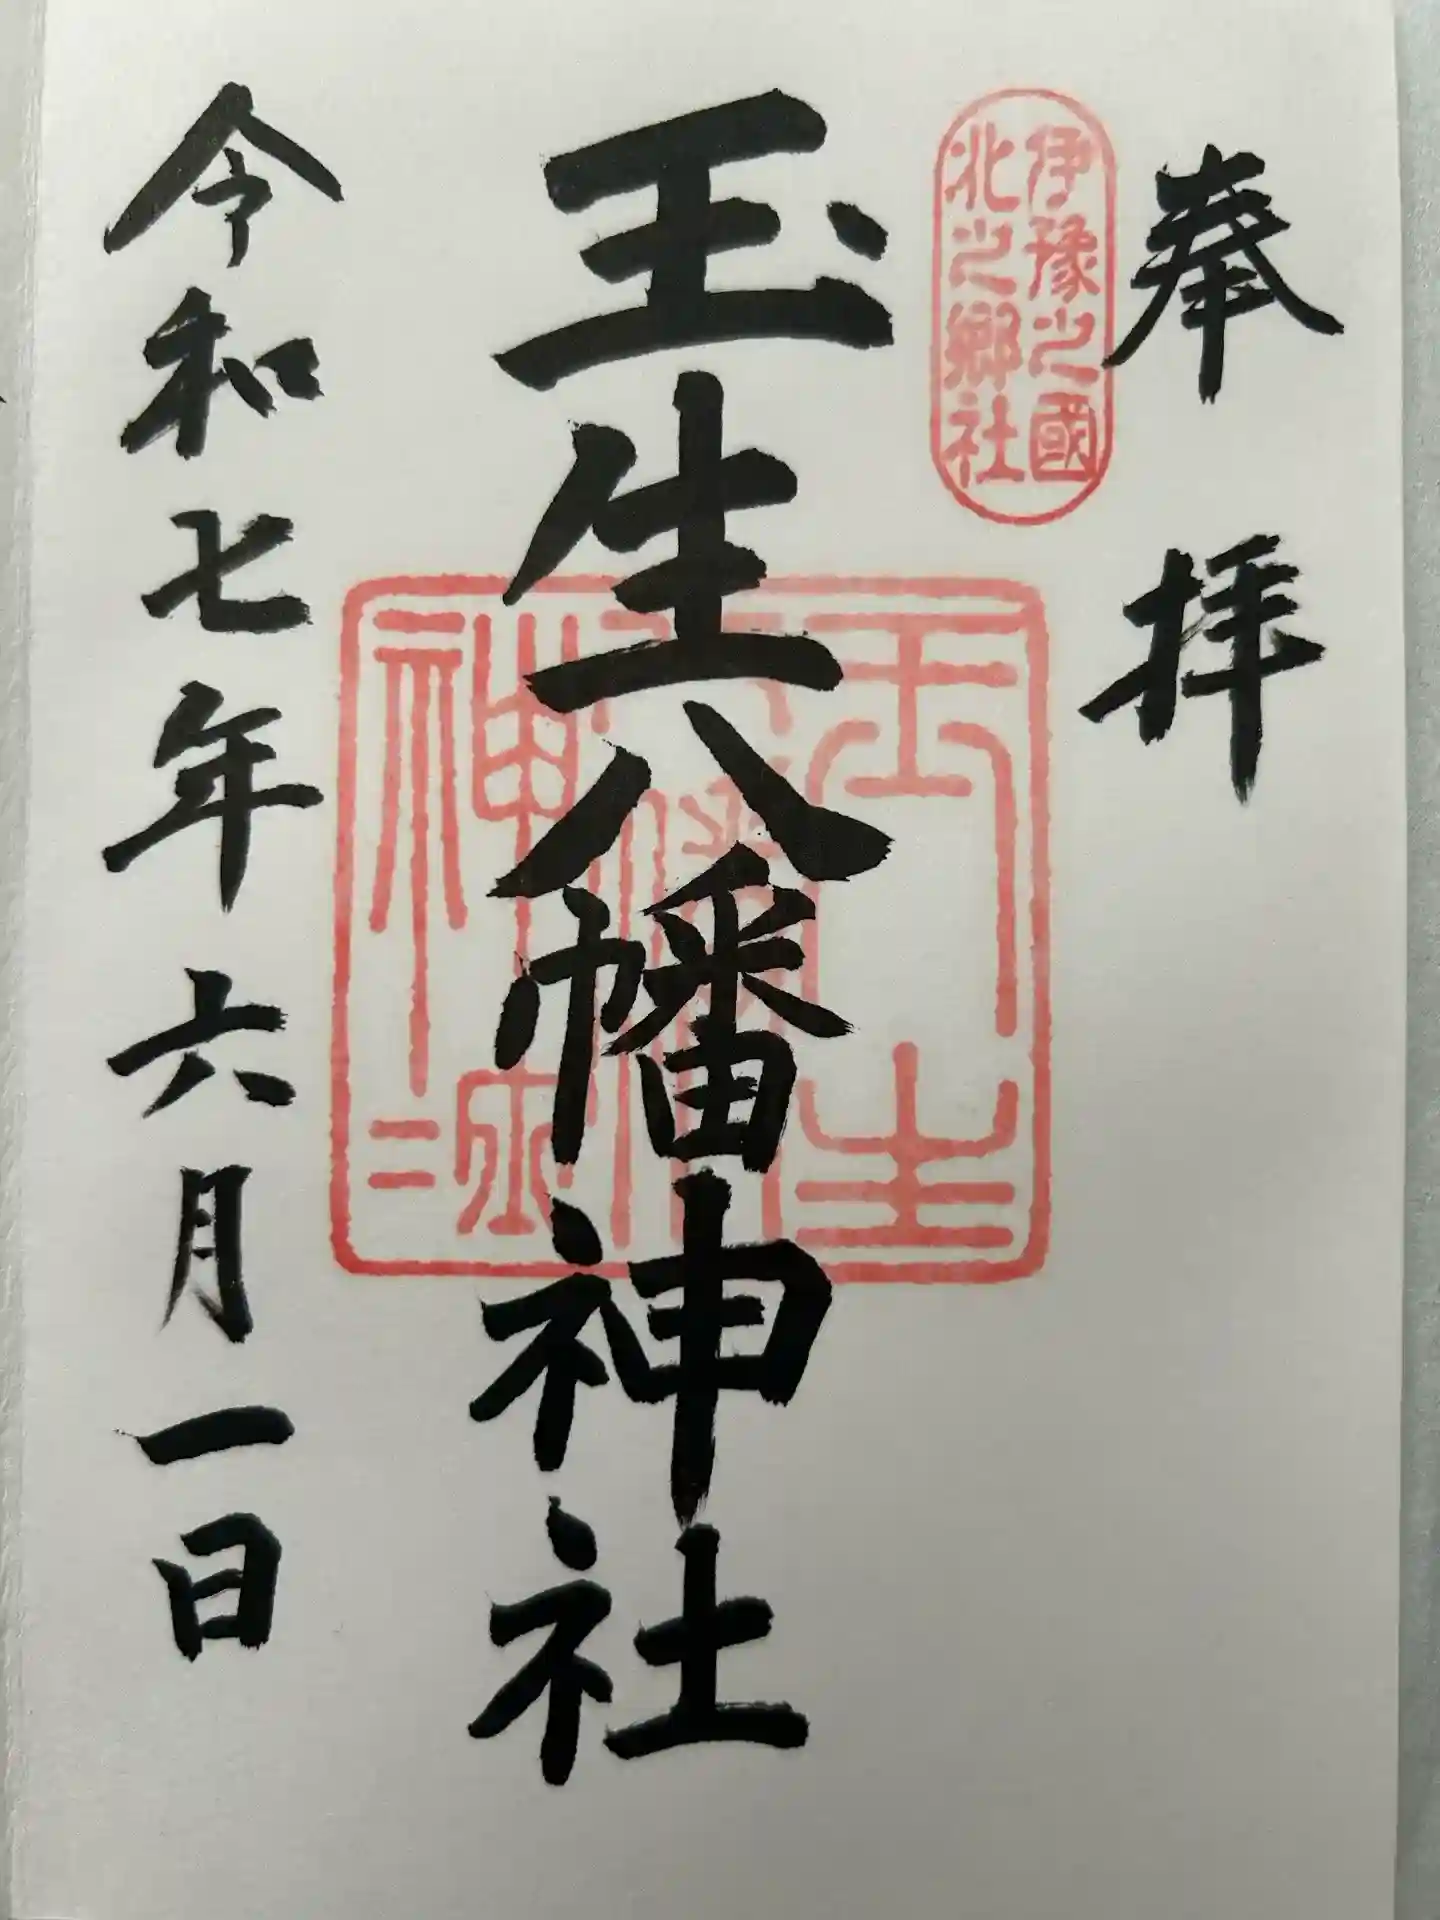 奉拝
伊豫之國
北之郷社
玉生八幡神社
玉生
八幡
神社
令和七年六月一日